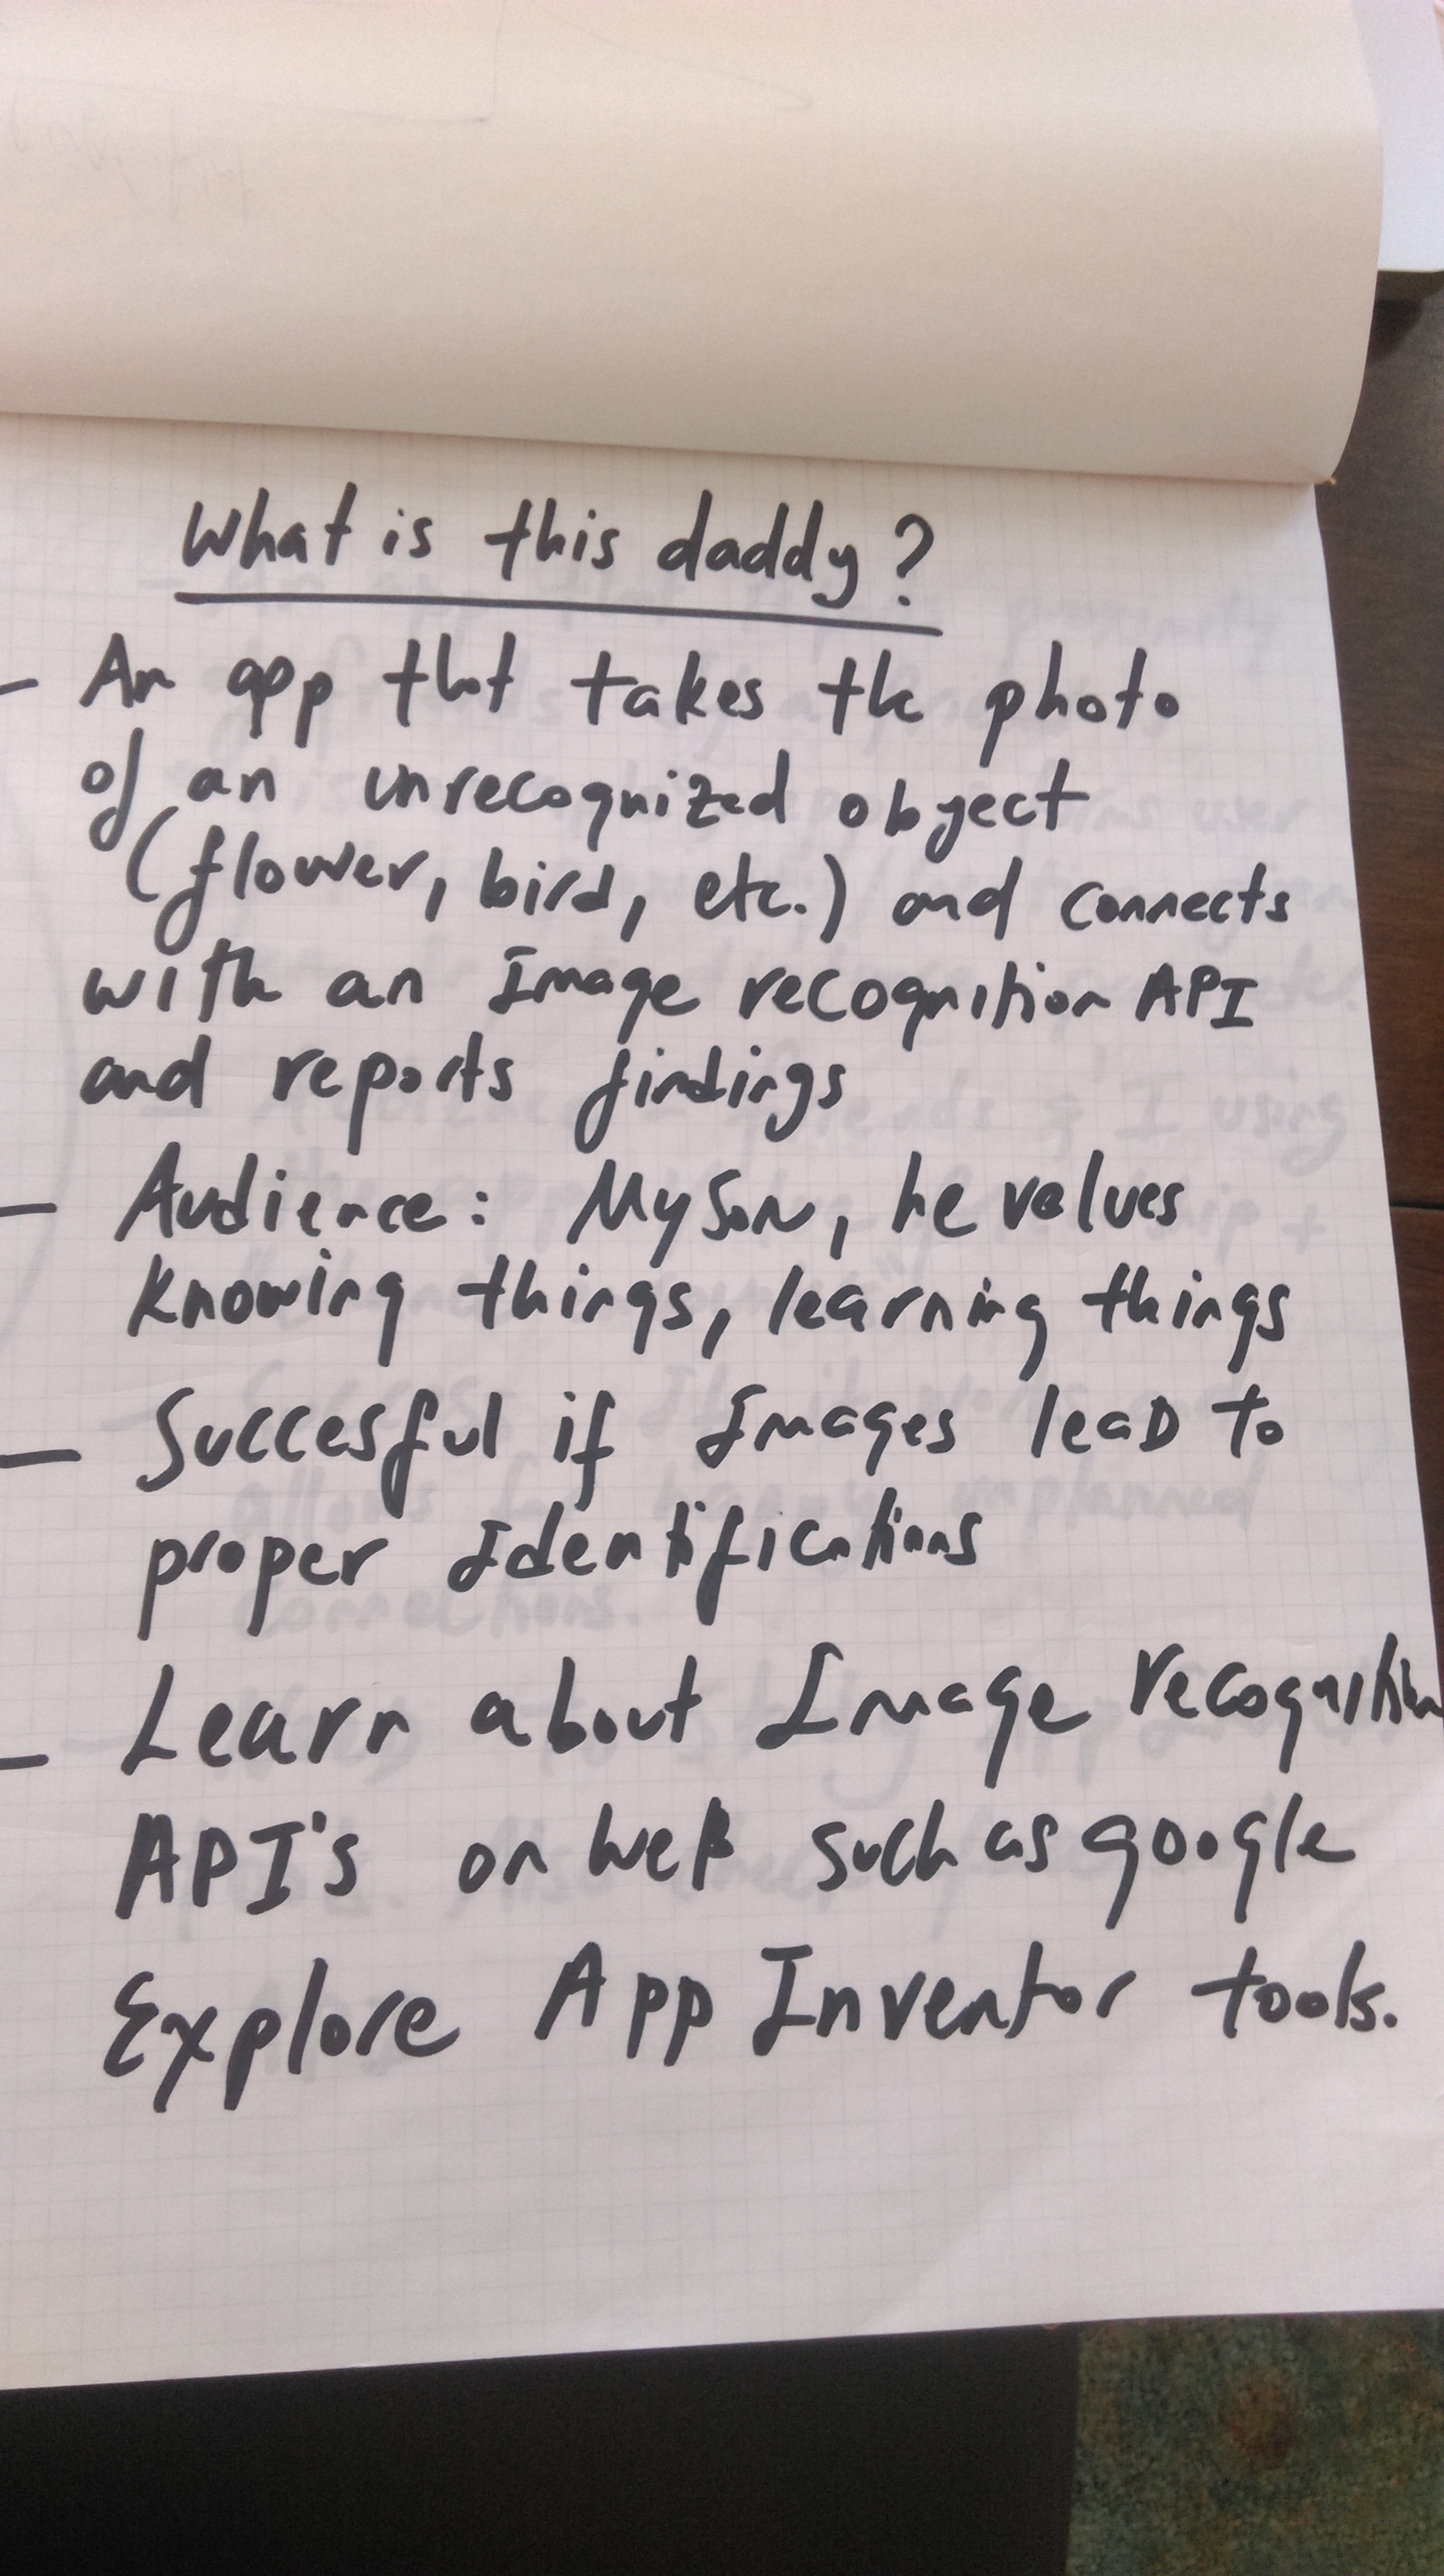 What is this daddy?
- An app that takes the photo
of an unrecognized object
(flower, bird, etc.) and connects
with an Image recognition API
and reports findings
- Audience: My Son, he values
knowing things, learning things
- Succesful if Images lead to
proper Identifications
- Learn about Image recognition
API's on web such as google
Explore App Inventor tools.